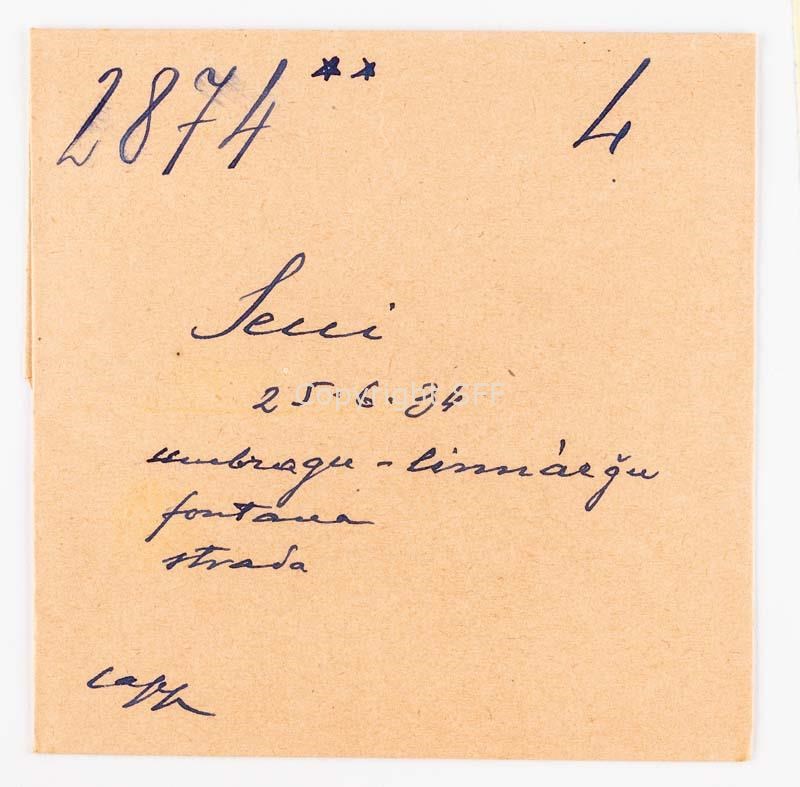 2874** 4
Seui
25.6.84
umbragu - linnárğu
fontana
strada
Copyright SFF
capp